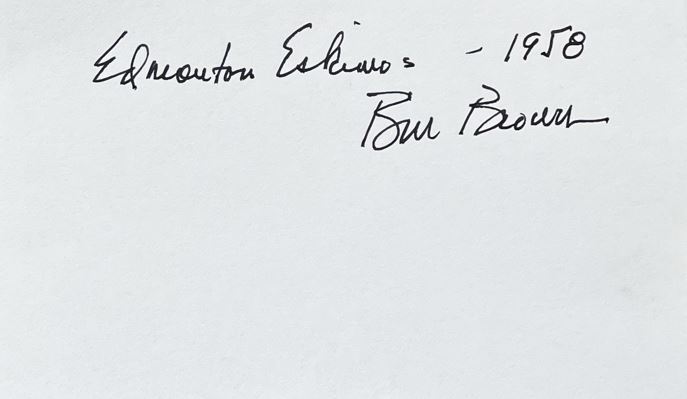 Edmonton Eskimos - 1958
Bill Brown